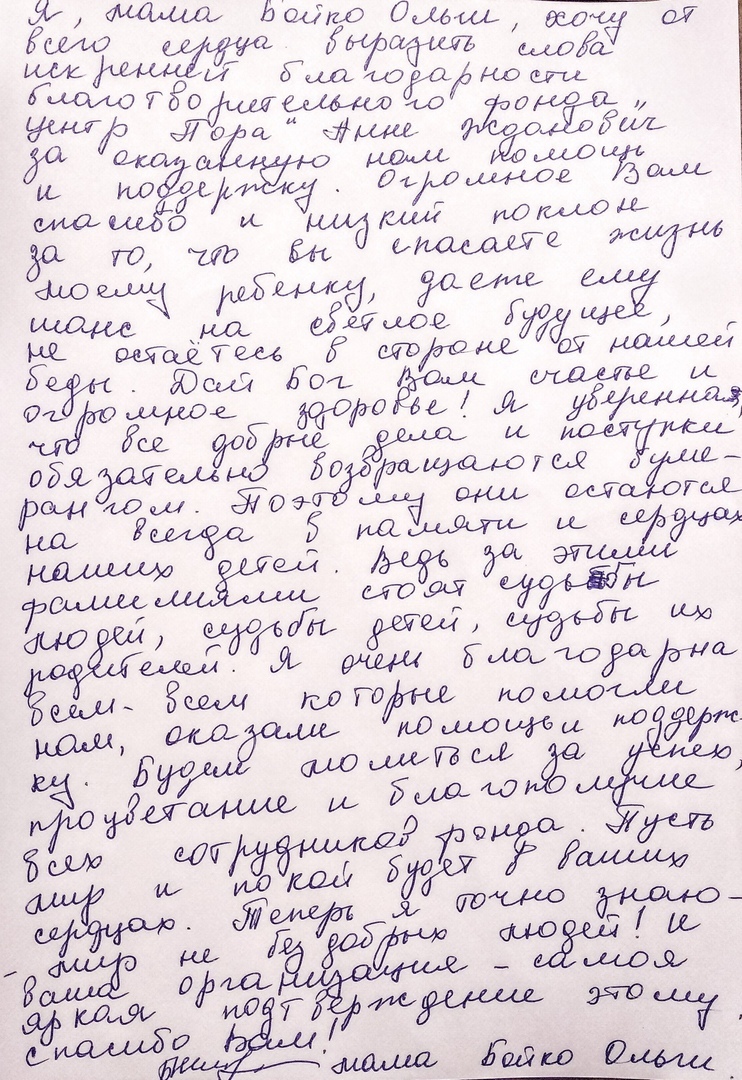 Я, мама Бойко Ольги, хочу от
всего сердца выразить слова
искренней благодарности
благотворительного фонда „
центр Пора" Анне Жданович
за оказанную нам помощь
и поддержку. Огромное Вам
спасибо и низкий поклон
за то, что вы спасаете жизнь
моему ребенку, даете ему
шанс на светлое будущее,
не остаётесь в стороне от нашей
беды. Дай Бог Вам счастье и
огромное здоровье! Я уверенная,
что все добрые дела и поступки
обязательно возвращаются буме-
рангом. Поэтому они остаются
на всегда в памяти и сердцах
наших детей. Ведь за этими
фамилиями стоят судьбы
людей, судьбы детей, судьбы их
родителей. Я очень благодарна
всем-всем которые помогли
нам, оказали помощь и поддерж-
ку. Будем молиться за успех,
процветание и благополучие
всех сотрудников фонда. Пусть
мир и покой будет в ваших
сердцах. Теперь я точно знаю-
- мир не без добрых людей! И
ваша организация - самая
яркая подтверждение этому.
спасибо Вам!
мама Бойко Ольги.